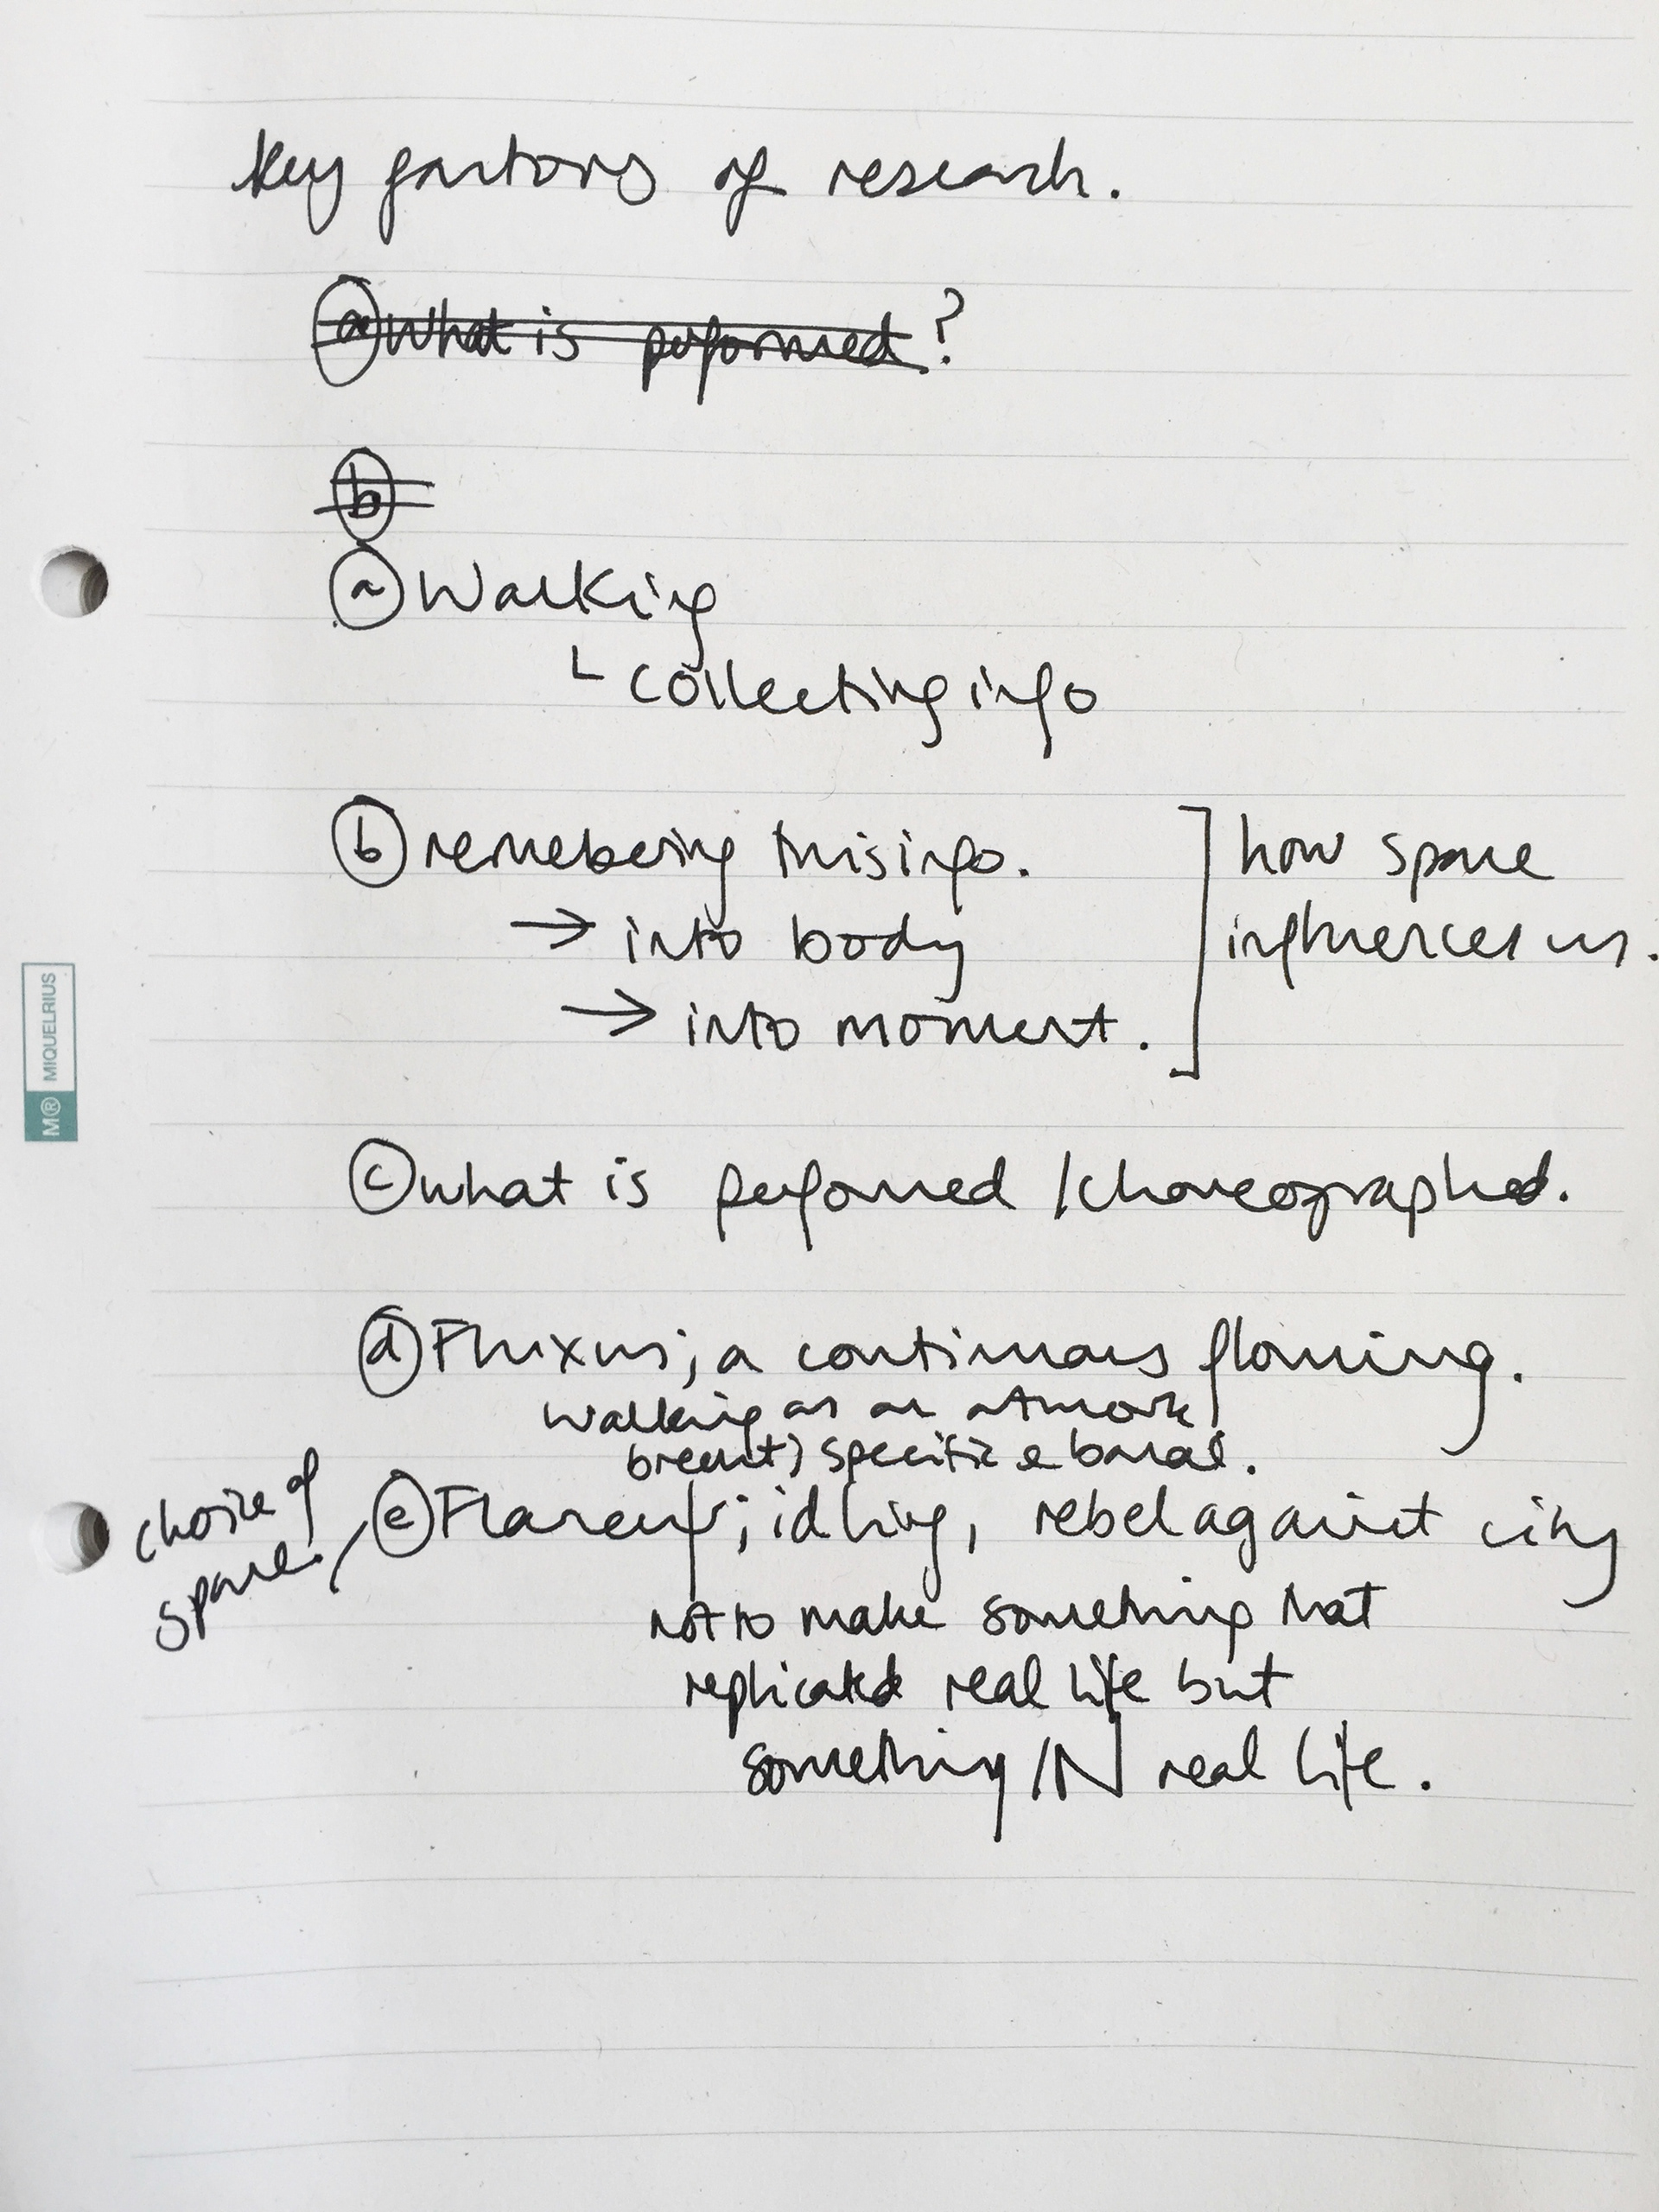 key factors of research.
a What is performed?
b
a Walking
└ collecting info
b remebering this info.
→ into body
→ into moment.
how space
influences us.
c what is performed / choreographed.
d Fluxus; a continuous flowing.
walking as an artwork
specific & banal.
choice of
space.
e Flaneur; idling, rebel against city
not to make something that
replicated real life but
something IN real life.
M® MIQUELRIUS